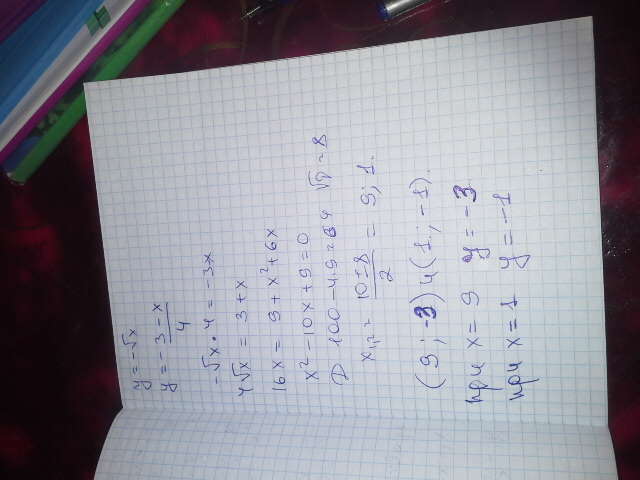 y = -√x
y = -3-x/4
-√x · 4 = -3x
4√x = 3+x
16x = 9+x²+6x
x²-10x+9=0
D 100-4·9=64 √D=8
x₁,₂ = 10±8/2 = 9; 1.
(9; -3) и (1; -1).
при x=9 y=-3
при x=1 y=-1